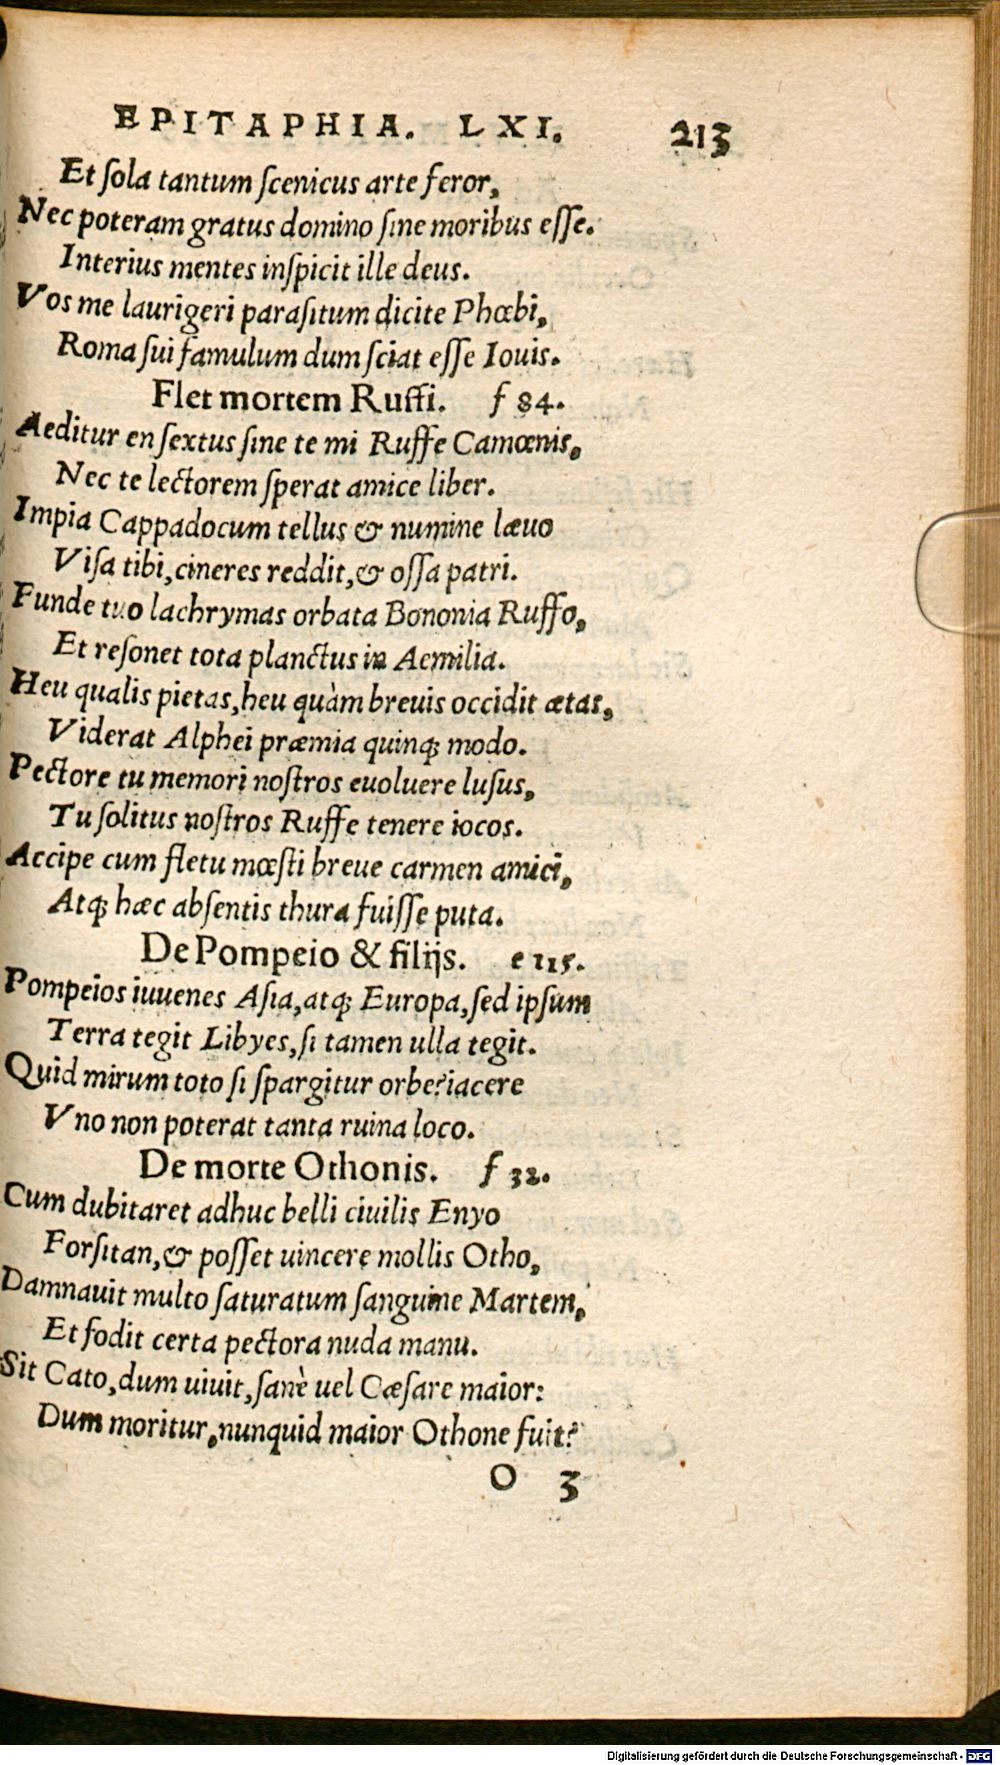 EPITAPHIA. LXI. 213
Et ſola tantum ſcenicus arte feror,
Nec poteram gratus domino ſine moribus eſſe.
Interius mentes inſpicit ille deus.
Vos me laurigeri paraſitum dicite Phœbi,
Roma ſui famulum dum ſciat eſſe Iouis.
Flet mortem Ruffi. f 84.
Aeditur en ſextus ſine te mi Ruffe Camœnis,
Nec te lectorem ſperat amice liber.
Impia Cappadocum tellus & numine læuo
Viſa tibi, cineres reddit, & oſſa patri.
Funde tuo lachrymas orbata Bononia Ruffo,
Et reſonet tota planctus in Aemilia.
Heu qualis pietas, heu quàm breuis occidit ætas,
Viderat Alphei præmia quinqꝫ modo.
Pectore tu memori noſtros euoluere luſus,
Tu ſolitus noſtros Ruffe tenere iocos.
Accipe cum fletu mœſti breue carmen amici,
Atqꝫ hæc abſentis thura fuiſſe puta.
De Pompeio & filijs. e 115.
Pompeios iuuenes Aſia, atqꝫ Europa, ſed ipſum
Terra tegit Libyes, ſi tamen ulla tegit.
Quid mirum toto ſi ſpargitur orbe? iacere
Vno non poterat tanta ruina loco.
De morte Othonis. f 32.
Cum dubitaret adhuc belli ciuilis Enyo
Forſitan, & poſſet uincere mollis Otho,
Damnauit multo ſaturatum ſanguine Martem,
Et fodit certa pectora nuda manu.
Sit Cato, dum uiuit, ſanè uel Cæſare maior:
Dum moritur, nunquid maior Othone fuit?
O 3
Digitalisierung gefördert durch die Deutsche Forschungsgemeinschaft - DFG